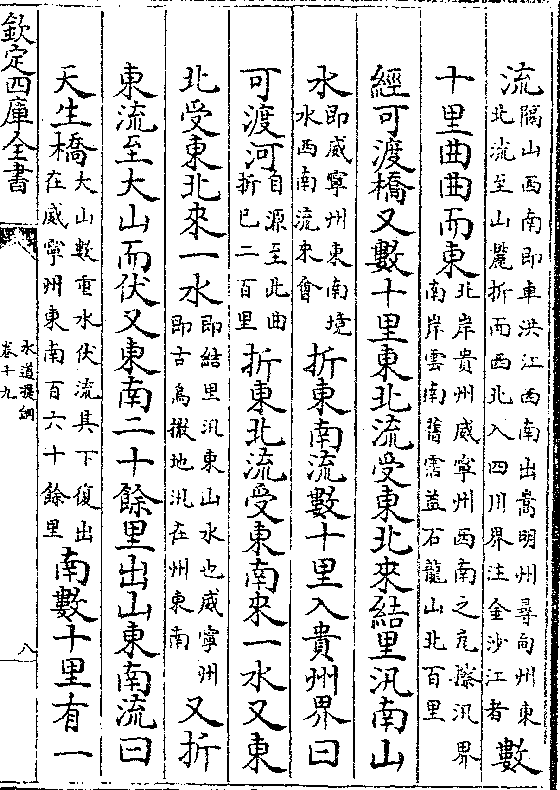 流隔山西南即車洪江西南出嵩明州尋向州東北流至山麓折而西北入四川界注金沙江者數
十里曲曲而東北岸貴州威寧州西南之瓦渣汛界南岸雲南舊霑益石龍山北百里
經可渡橋又數十里東北流受東北來結里汛南山
水即威寧州東南境水西南流來會折東南流數十里入貴州界曰
可渡河自源至此曲折已二百里折東北流受東南來一水又東
北受東北來一水即結里汛東山水也威寧州即古烏撒地汛在州東南又折
東流至大山而伏又東南二十餘里出山東南流曰
天生橋大山數重水伏流其下復出在威寧州東南百六十餘里南數十里有一
欽定四庫全書
水道提綱
卷十九
八